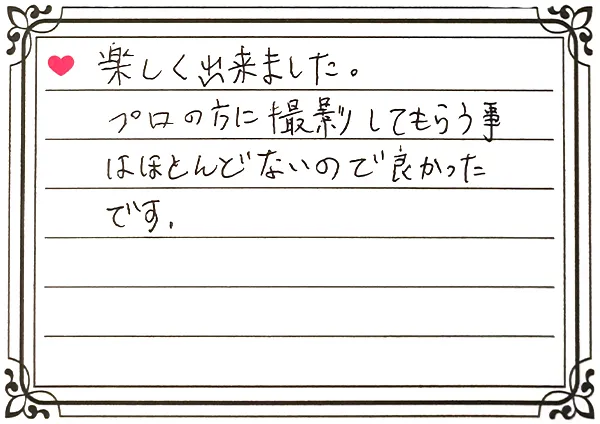 楽しく出来ました。
プロの方に撮影してもらう事
はほとんどないので良かった
です。